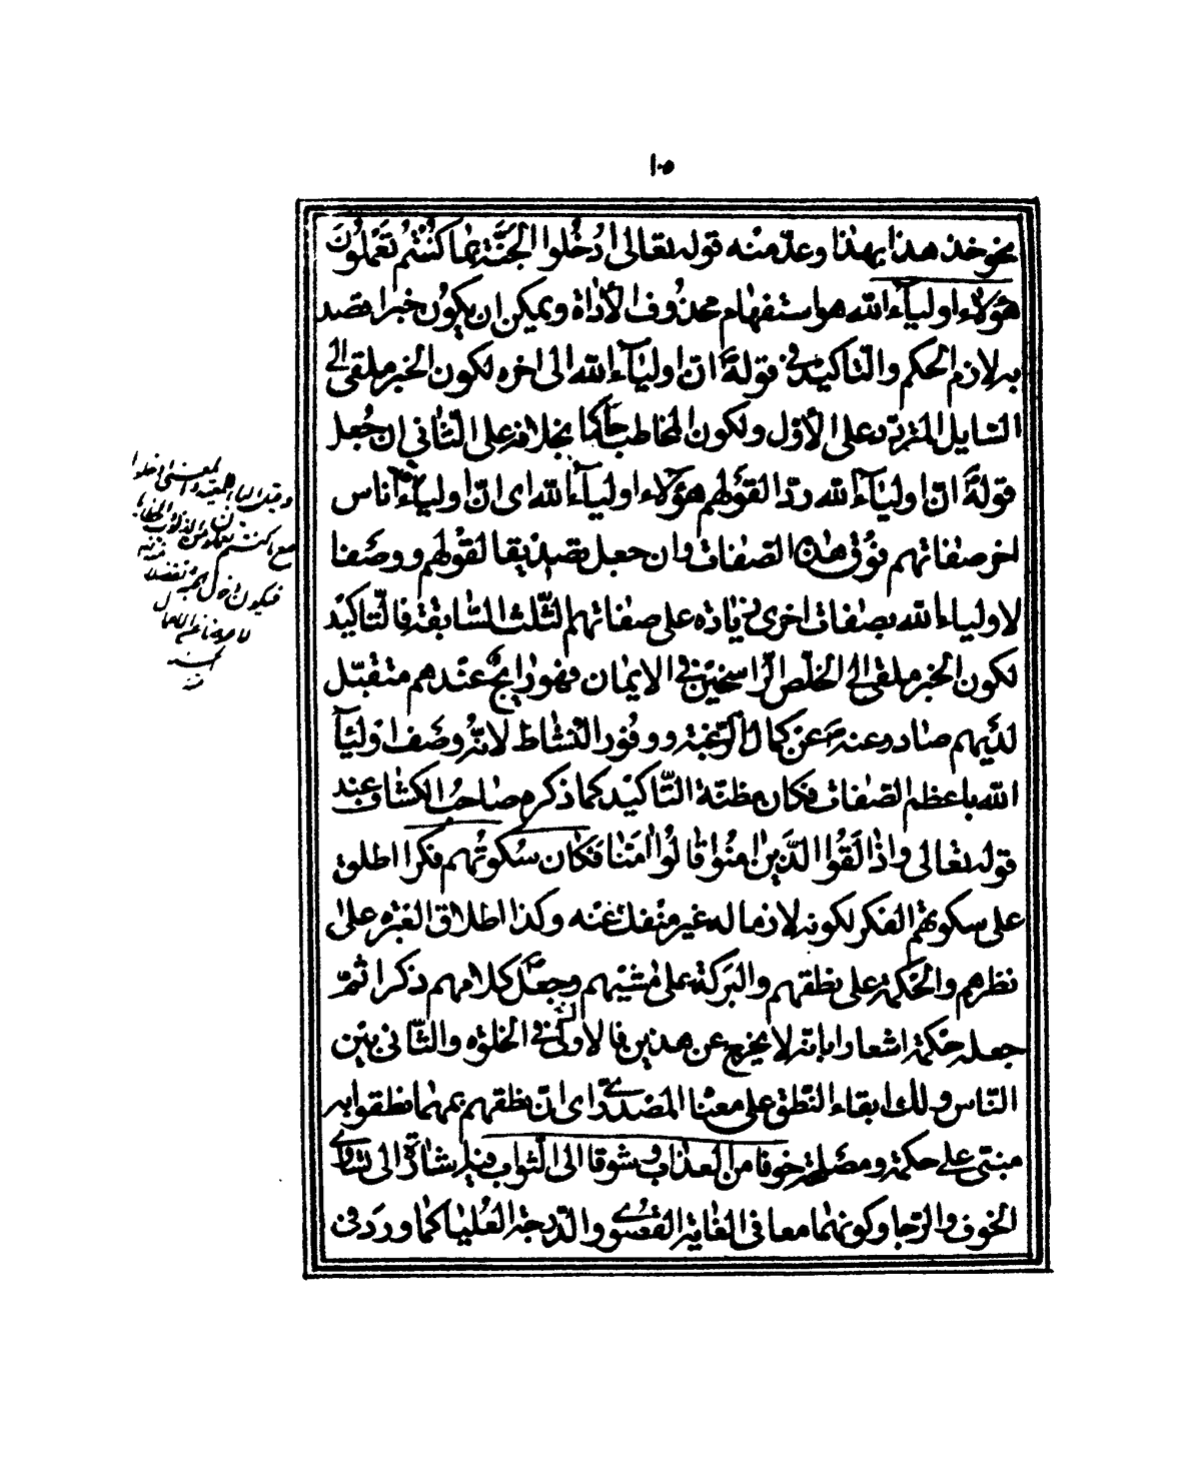 ١٠٥
نحو خذ هذا بهذا وعدّ منه قوله تعالى ادْخُلوا الجَنَّة بما كُنْتُم تَعْمَلُونَ
هؤلاء اولياء الله هو استفهام محذوف الأداة ويمكن ان يكون خبرا قصد
به لازم الحكم والتّاكيد فى قوله انّ اولياء الله الى اخره لكون الخبر ملقى الى
السّايل المتردّد على الأوّل ولكون المخاطب حاكما بخلافه على الثّانى ان جُعل
قوله انّ اولياء الله ردّا لقولهم هؤلاء اولياء الله اى انّ اولياءه اناس
اخر صفاتهم فوق هذه الصّفات وان جعل تصديقا لقولهم ووصفا
لاولياء الله بصفات اخرى زيادة على صفاتهم الثّلث السّابقة فالتّاكيد
لكون الخبر ملقى الى الخلّص الرّاسخين فى الايمان فهو رايج عندهم متقبّل
لديهم صادر عنه عن كمال الرّغبة ووفور النّشاط لانّه وصف اوليآء
الله باعظم الصّفات فكان مظنّة التّاكيد كما ذكره صاحب الكشّاف عند
قوله تعالى واذا لَقُوا الَّذين امنُوا قالُوا امَنّا فكان سكوتُهم فكرا اطلق
على سكوتهم الفكر لكونه لازما له غير منفك عنه وكذا اطلاق العبرة على
نظرهم والحكمة على نطقهم والبركة على مشيهم وجعل كلامهم ذكرا ثمّ
جعله حكمة اشعارا بانّه لا يخرج عن هذين فالاوّل فى الخلوة والثّانى بين
النّاس ولك ابقاء النّطق على معناه المصدرى اى انّ نطقهم بمهما نطقوا به
مبتنى على حكمة ومصلحة خوفا من العذاب وشوقا الى الثّواب فيه اشارة الى تساوى
الخوف والرّجا وكونهما معا فى الغاية القصوى والدّرجة العُليا كما ورد فى